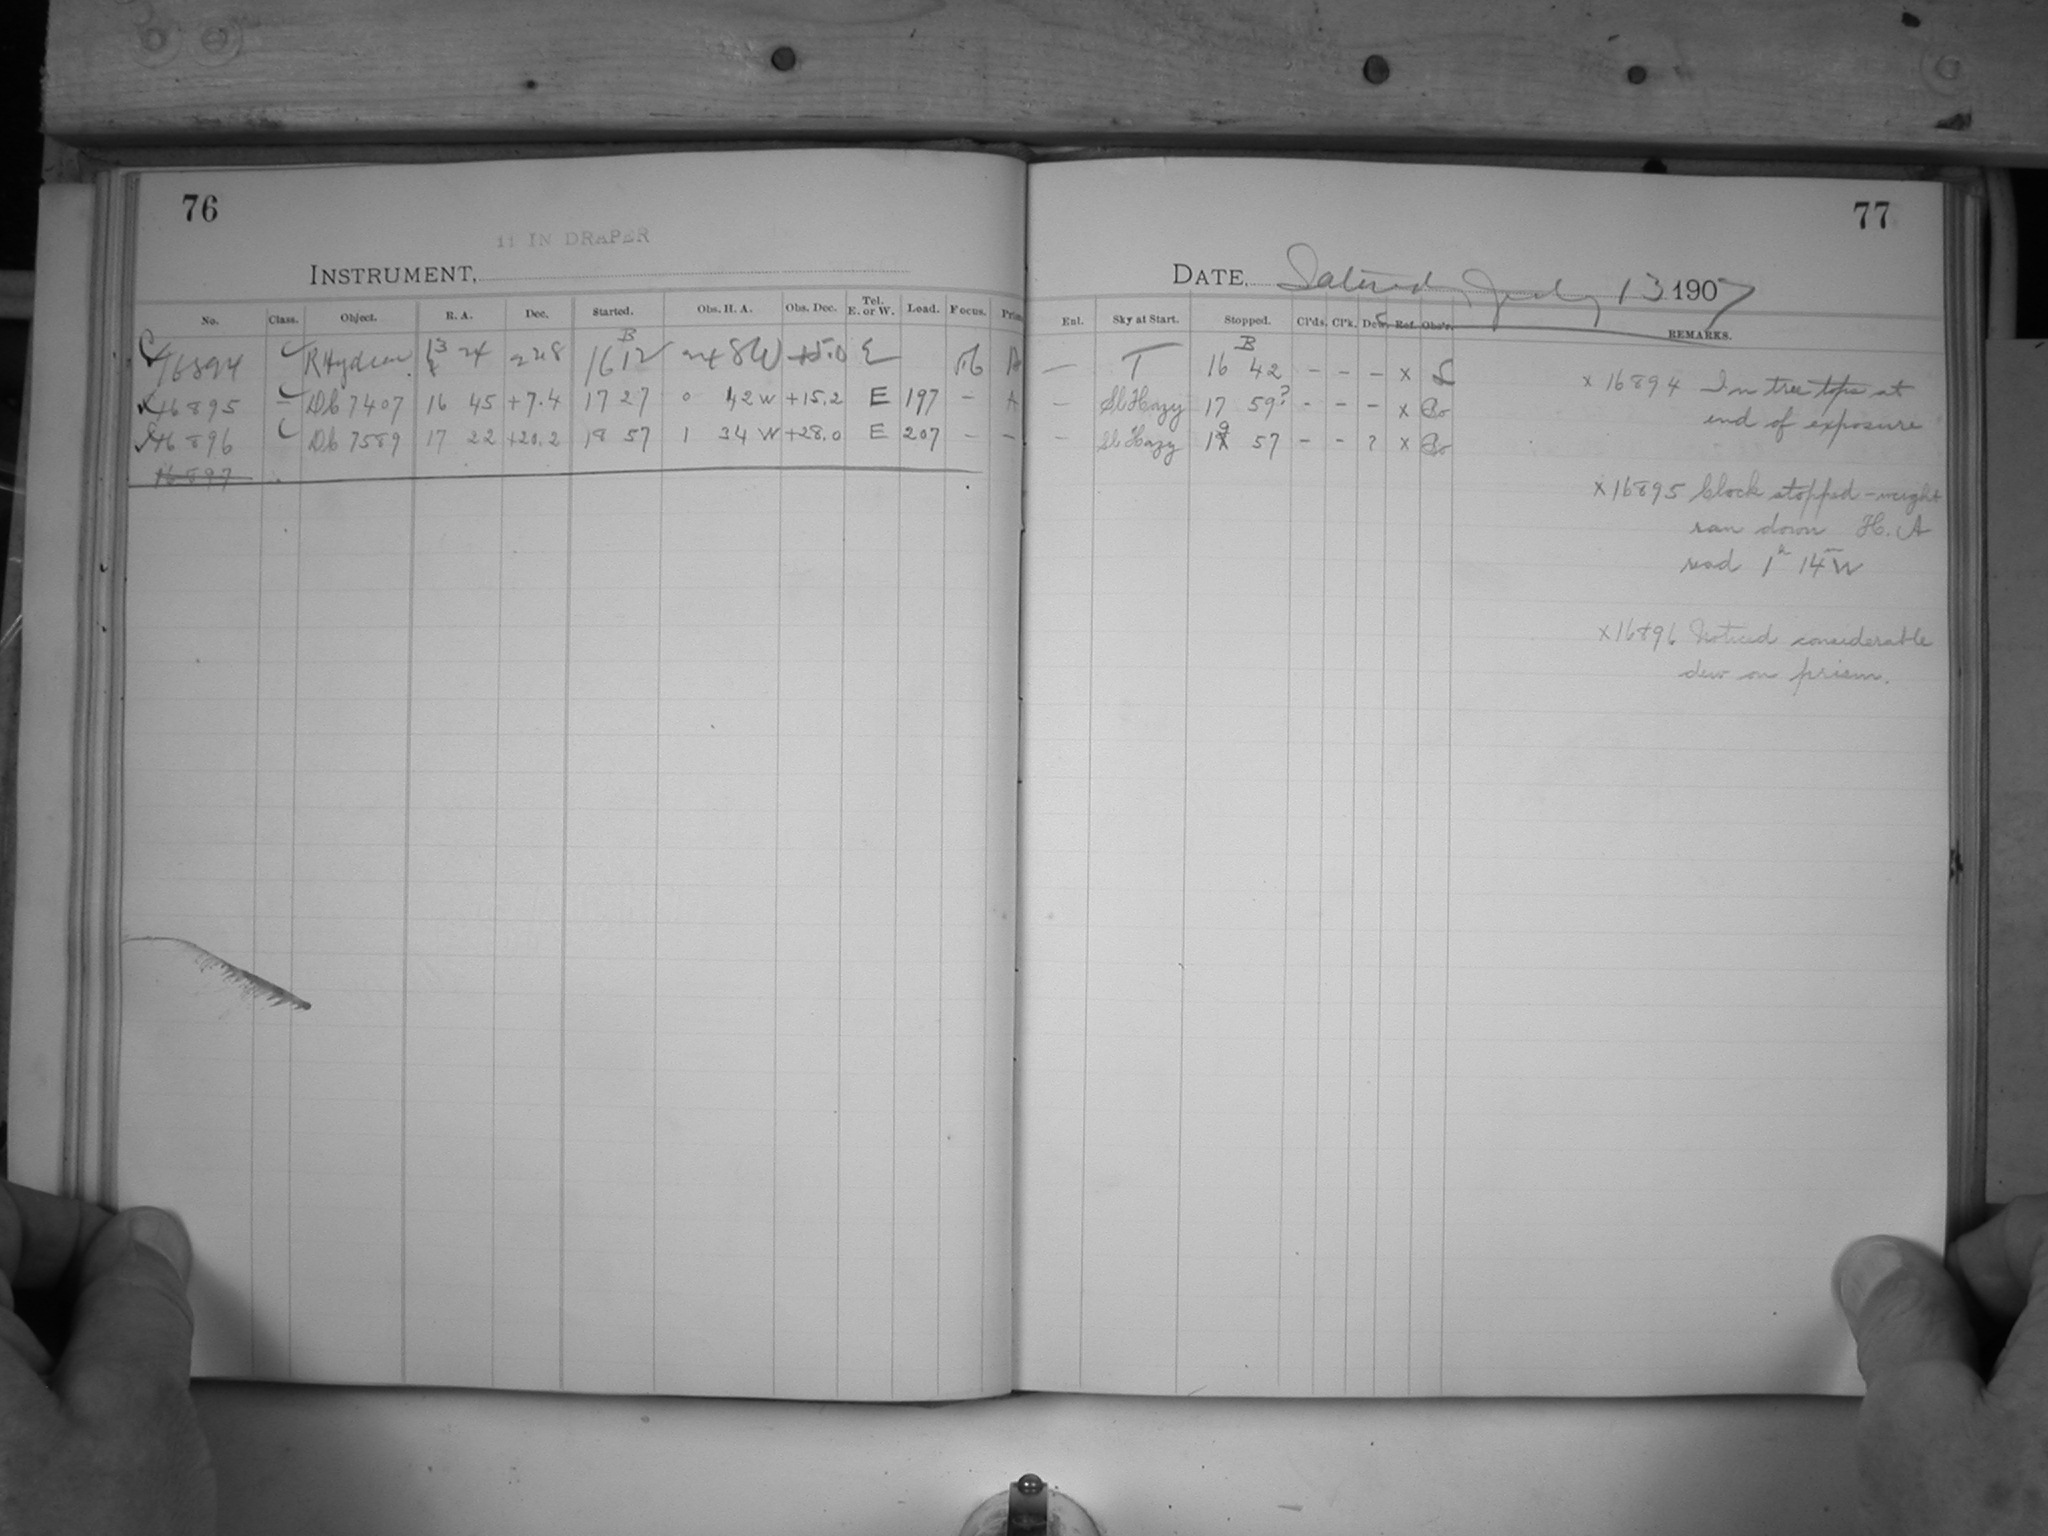 76
11 IN DRAPER
INSTRUMENT,
No. Class. Object. R. A. Dec. Started. Obs. H. A. Obs. Dec. Tel. E. or W. Load. Focus. Prism
16894 R Hydrae 13 24 -22.8 16 12 B 2 48 W +5.0 E A
16895 Db 7407 16 45 +7.4 17 27 0 42 W +15.2 E 197 - A
16896 Db 7589 17 22 +20.2 18 57 1 34 W +28.0 E 207 - -
16897
77
DATE, Saturday July 13 1907
Enl. Sky at Start. Stopped. Cl'ds. Cl'k. Dew. Ref. Obs'r. REMARKS.
— T 16 42 B - - - x S
— Sl Hazy 17 59? - - - x
— Sl Hazy 19 57 - - ? x
x 16894 In tree tops at
end of exposure
x 16895 Clock stopped - weight
ran down H. A
read 1h 14m W
x 16896 Noticed considerable
dew on prism.